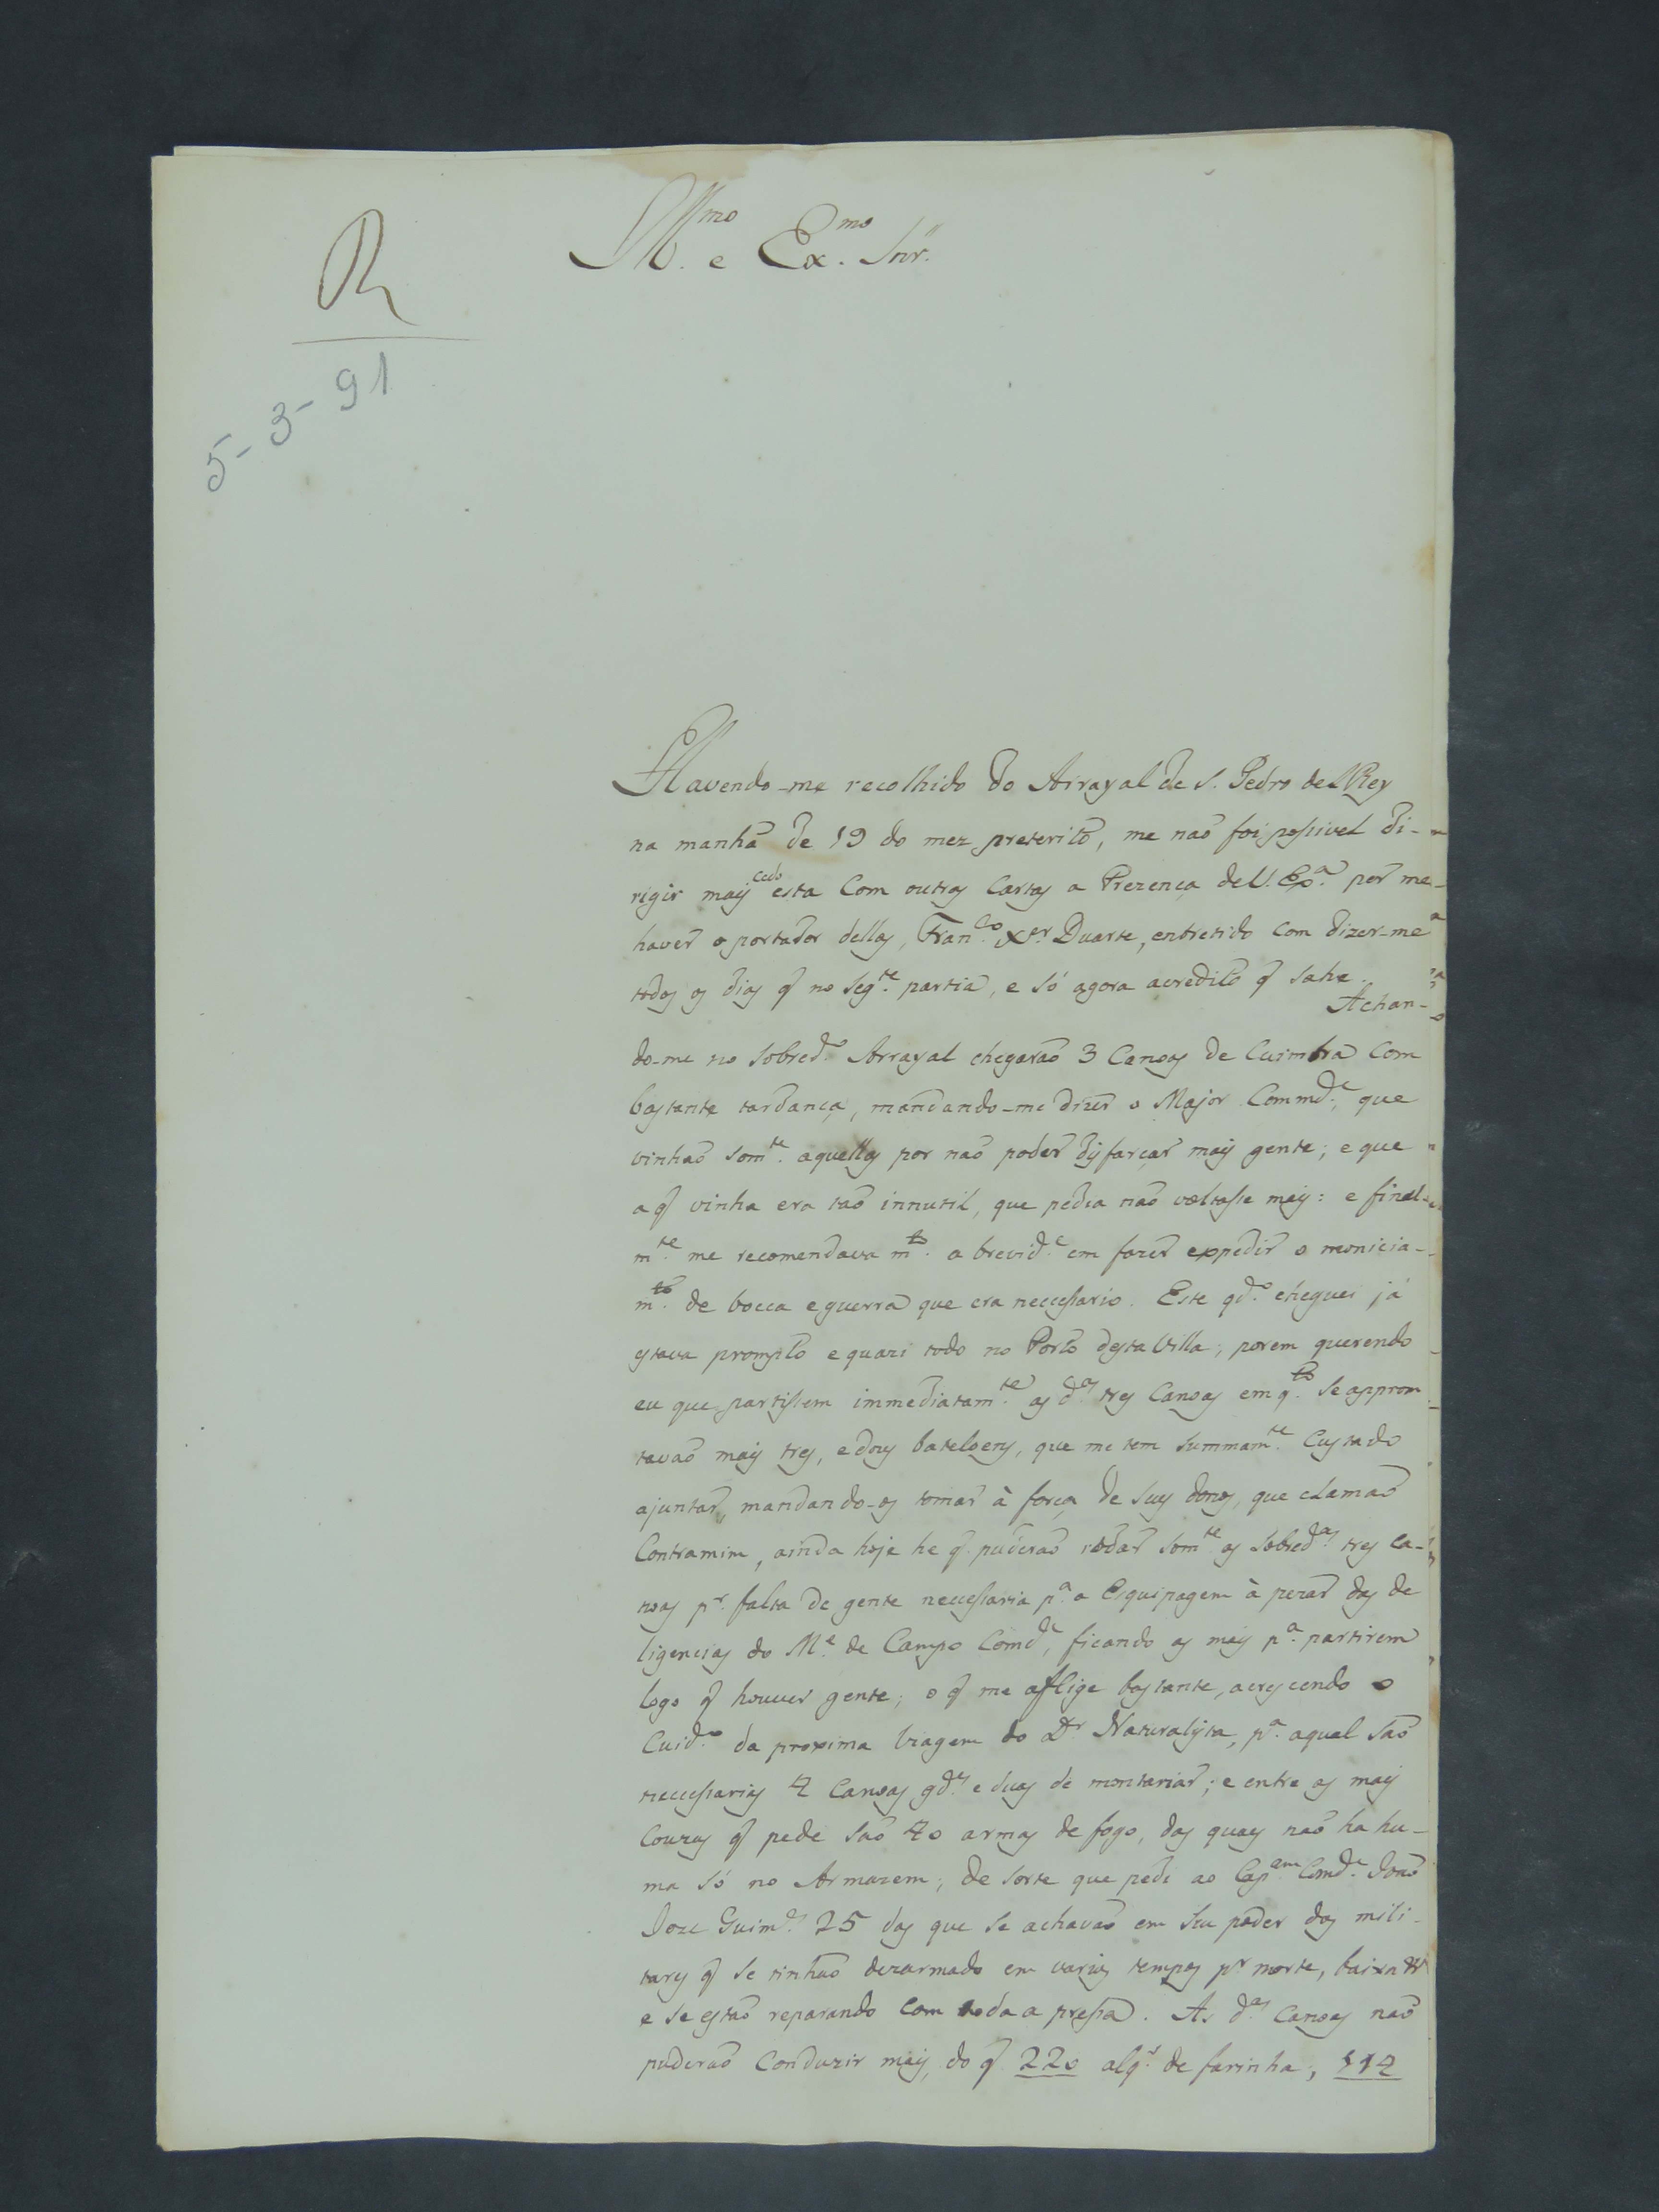 Ill.mo e Ex.mo Snr.
R
5-3-91
Havendo-me recolhido do Arrayal de S. Pedro delRey
na manhã de 19 do mez preterito, me naõ foi possivel di-
rigir mais cedo esta Com outras Cartas a Prezença de V. Ex.a por me
haver o portador dellas, Fran.co X.er Duarte, entretido com dizer-me
todos os dias q̃ no seg.te partia, e só agora acredito q̃ sahe.
Achan-
do-me no sobred.o Arrayal chegaraõ 3 Canoas de Cuimbra Com
bastante tardança, mandando-me dizer o Major Commd.e, que
vinhaõ som.te aquellas por naõ poder disfarçar mais gente; e que
a q̃ vinha era taõ innutil, que pedia naõ voltasse mais: e final-
m.te me recomendava m.to a brevid.e em fazer expedir o monicia-
m.to de bocca e guerra que era necessario. Este qd.o cheguei já
estava prompto e quazi todo no Porto desta Villa; porem querendo
eu que partissem immediatam.te as d.as tres Canoas em q.to se approm
tavaõ mais tres, e dous bateloens, que me tem summam.te Custado
ajuntar, mandando-os tomar à força de seus donos, que clamaõ
Contramim, ainda hoje he q̃ puderaõ rodar som.te as sobred.as tres Ca-
noas p.r falta de gente necessaria p.a a Esquipagem à pezar das de
ligencias do M.e de Campo Comd.e, ficando as mais p.a partirem
logo q̃ houver gente; o q̃ me aflige bastante, acrescendo o
Cuid.o da proxima Viagem do D.r Naturalista, p.a aqual saõ
necessarias 4 Canoas gd.es e duas de montariar; e entre as mais
Couzas q̃ pede saõ 40 armas de fogo, das quaes naõ ha hu-
ma só no Armazem; de sorte que pedi ao Cap.am Comd.e Joaõ
Joze Guim.es 25 das que se achavaõ em seu poder dos mili-
tares q̃ se tinhaõ dezarmado em varios tempos p.r morte, baixa &
e se estaõ reparando com toda a pressa. As d.as Canoas naõ
puderaõ Conduzir mais, do q̃ 220 alq.s de farinha, 114